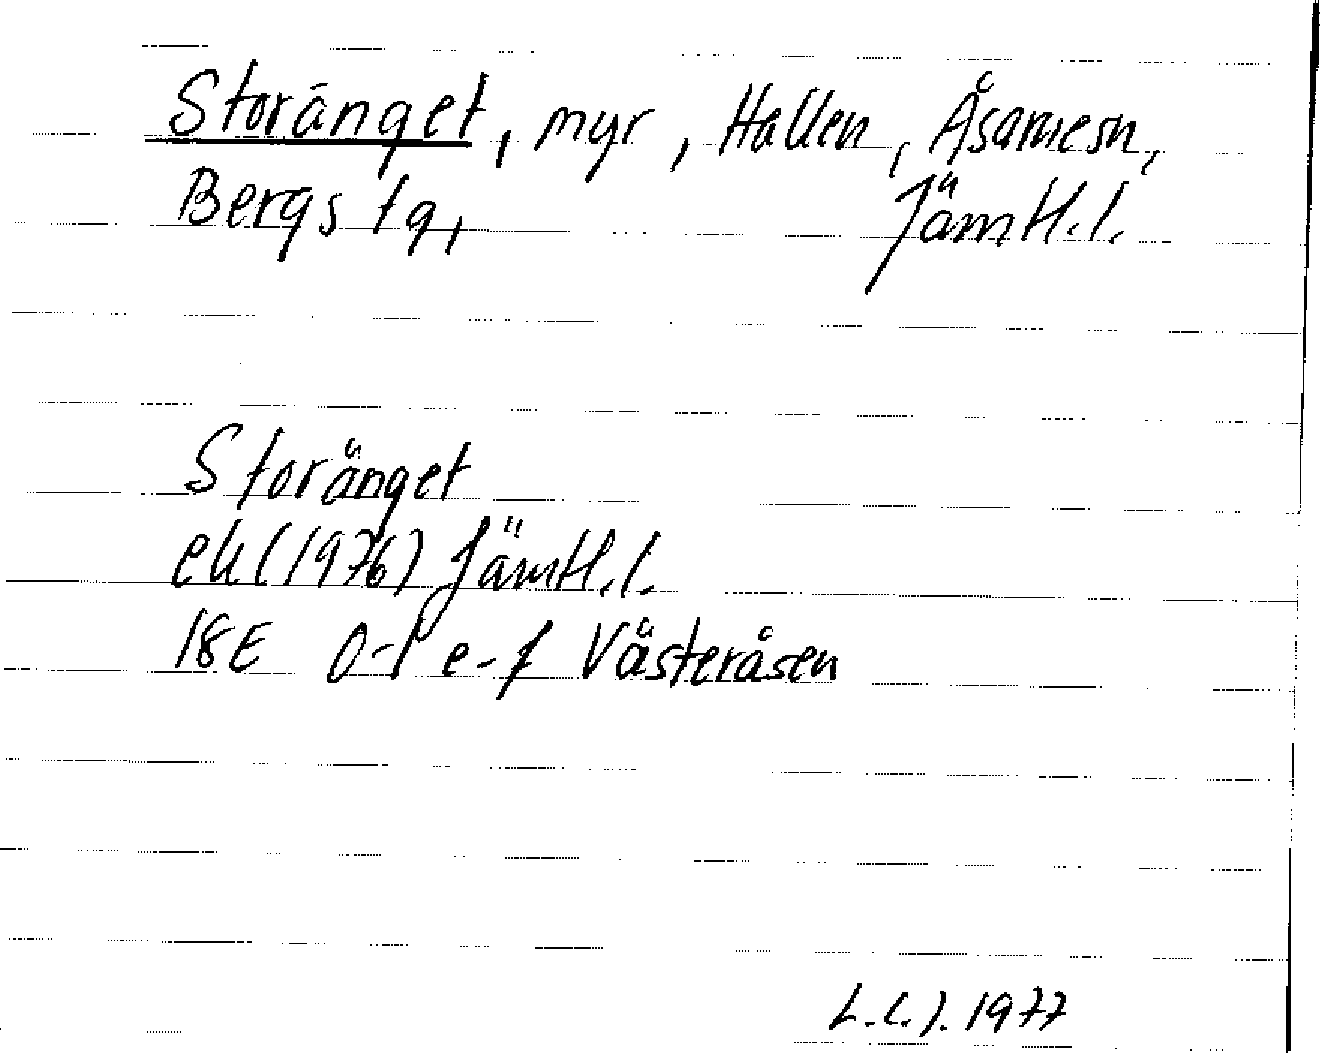 Storänget, myr, Hallen, Åsarnesn,
Bergs tg, Jämtl.l.
Storänget
ek (1976) Jämtl.l.
18E 0-1 e-f Västeråsen
L.C.J. 1977